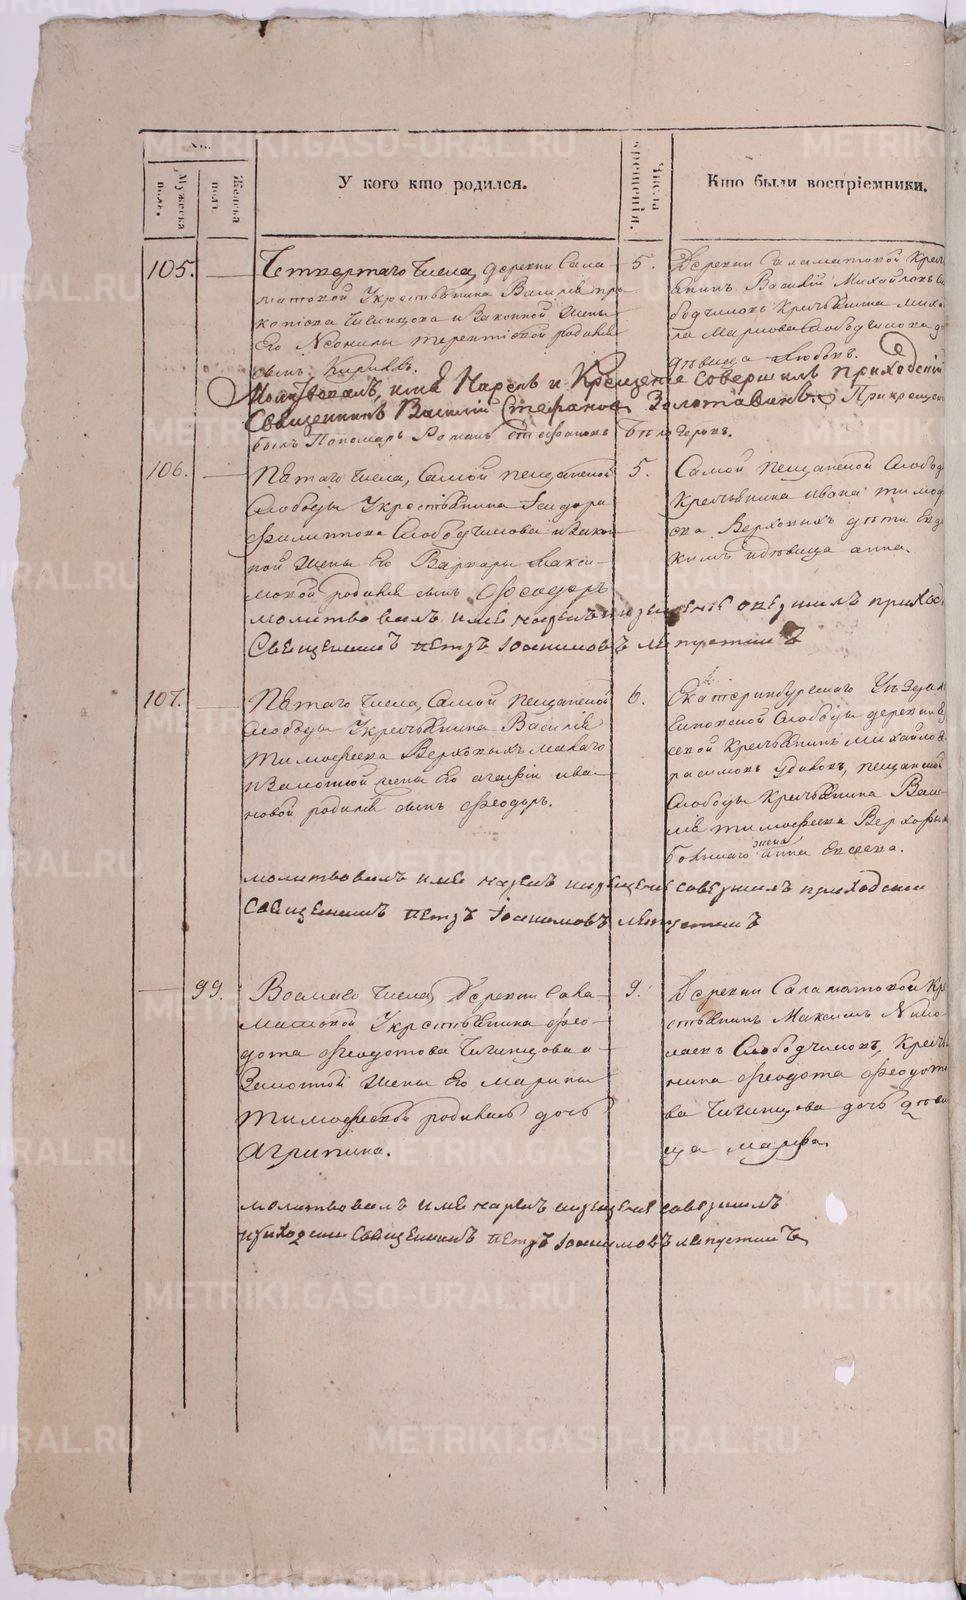 Мужеска полъ.
Женска полъ
У кого кто родился.
Числа крещенія.
Кто были воспріемники.
105.
Четвертаго Числа, деревни Сала-
матовой Укрестьянина Василія про-
копіева Чичинцова и Законной Жены
Его Неонилы терентьевой родился
сынъ Кириллъ.
5.
Деревни Саламатовой Кресть-
янинъ Василій Михайловъ Сло-
бодчиковъ Крестьянина Миха-
ла Маркова Слободчикова до
дѣвица Любовь.
Молитвовалъ, имя Нарелъ и Крещенїе совершилъ приходскїй
Священникъ Василїй Стефановъ Золотавинъ При крещенїи
былъ Пономарь Романъ Стефановъ
106.
Пятаго Числа, Самой пещанской
слободы Укрестьянина Ісидора
филиппова Слободчикова изакон-
ной Жены Его Варвары Макси-
мовой родился сынъ Феодоръ
5.
Самой пещанской Слободы
Крестьянина ивана тимоф
ева Верховыхъ дѣти Евдо
кимъ идѣвица анна.
молитвовалъ имя нарелъ икрещенїе совершилъ приход
Священникъ петръ Іоакимовъ ляпустинъ
107.
Пятаго Числа, Самой пещанской
слободы Укрестьянина Василія
Тимофеева Верховыхъ малаго
изаконной жены Его агафіи ива-
новой родился сынъ Феодоръ.
6.
Екатеринбурскаго Уѣзда
слободы деревни
ской Крестьянинъ михайло
расимовъ, пещанской
Слободы Крестьянина Васи-
лія тимофеева Верховыхъ
большаго жена анна Евсеева.
молитвовалъ имя нарелъ икрещенїе совершилъ приходскїй
священникъ петръ Іоакимовъ ляпустинъ
99.
Восмаго Числа, Деревни Сала-
матовой Укрестьянина фео-
дота феодотова Чичинцова и
Законной Жены Его Марины
Тимофеевой родилась дочь
Агрипина.
9.
Деревни Саламатовой Кре
стьянинъ Максимъ Нико-
лаевъ Слободчиковъ, Кресть
нина феодота феодото
ва Чичинцова дочь дѣви
ца марфа.
молитвовалъ имя нарелъ икрещенїе совершилъ
приходскїй Священникъ петръ Іоакимовъ ляпустинъ
METRIKI.GASO-URAL.RU